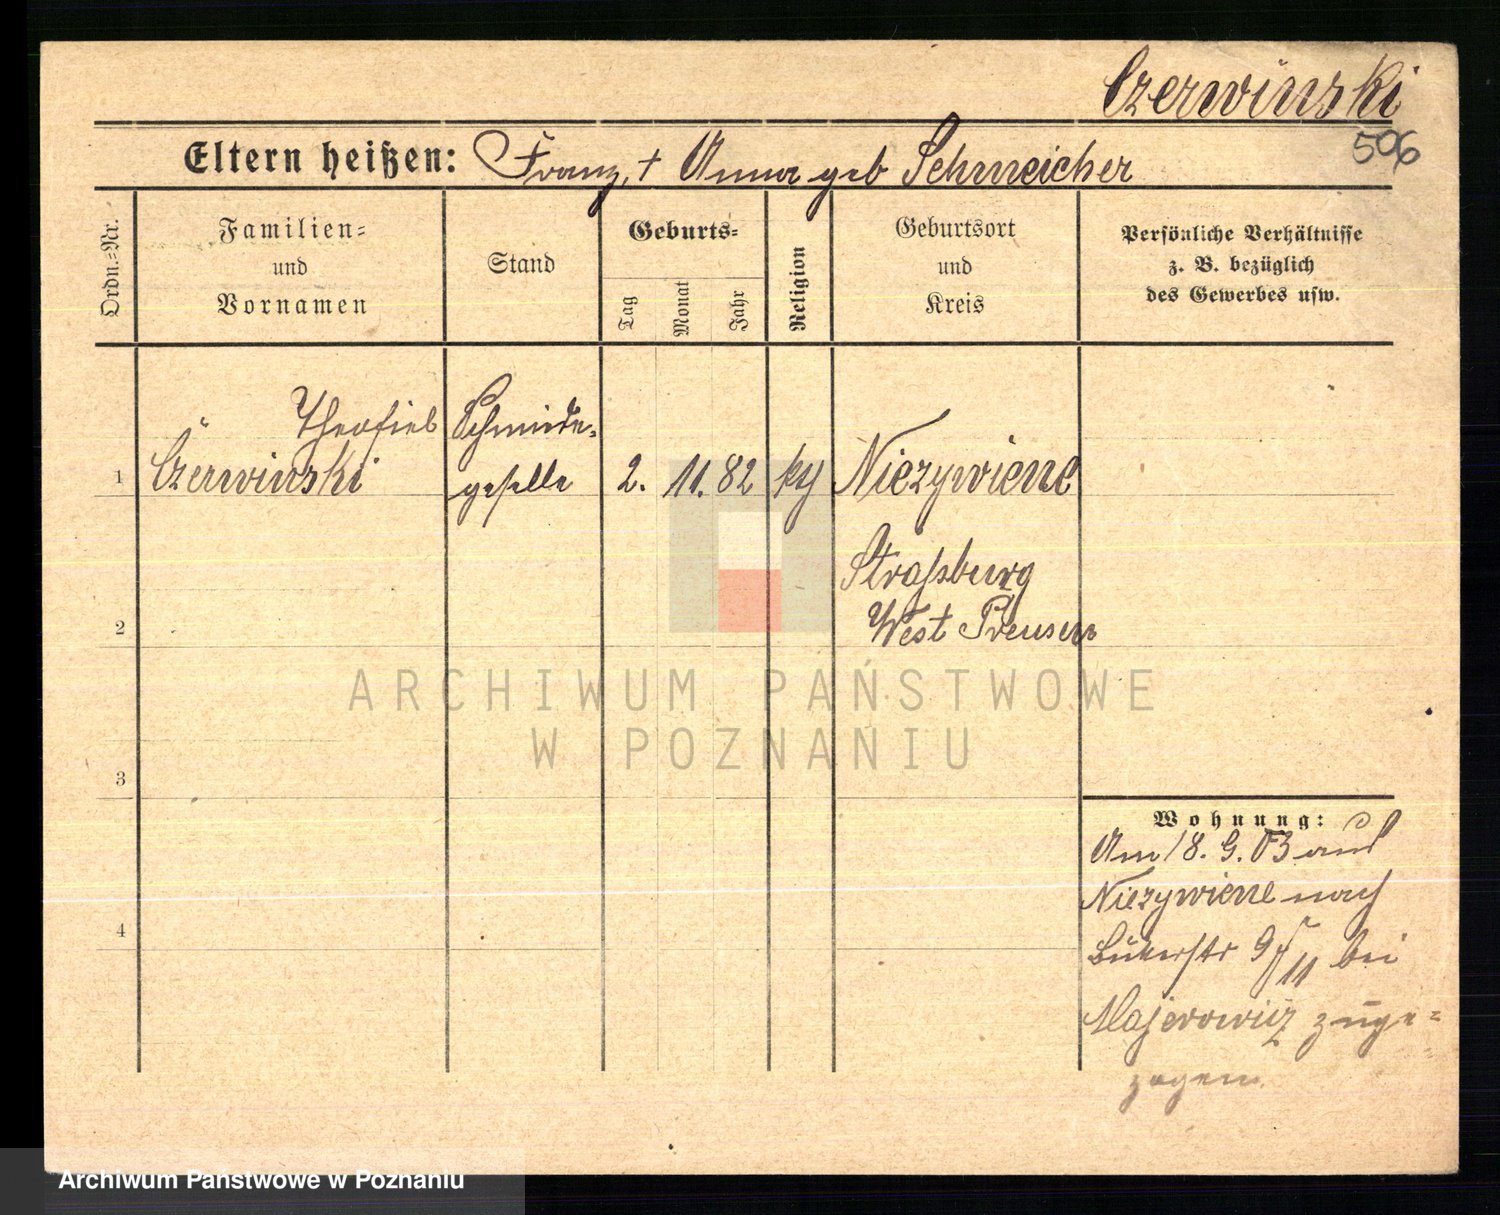 Czerwinski
596
Eltern heißen: Franz, + Anna geb Schmeicher
Ordn.=Nr.
Familien=
und
Vornamen
Stand
Geburts=
Tag
Monat
Jahr
Religion
Geburtsort
und
Kreis
Persönliche Verhältnisse
z. B. bezüglich
des Gewerbes usw.
Theofiel Schmiede=
1 Czerwinski geselle 2. 11. 82 kth Niezywiene
Straßburg
West Preusen
2
ARCHIWUM PAŃSTWOWE
W POZNANIU
3
Wohnung:
Am 18. 9. 03 aus
Niezywiene nach
4
9/11 bei
Majerowicz zuge=
zogen.
Archiwum Państwowe w Poznaniu